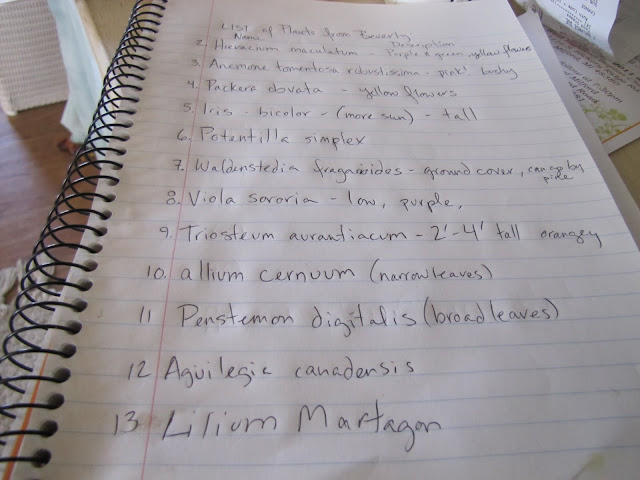 LIST of Plants from Beverly
Name Description
2. Hieracium maculatum - Purple & green, yellow flowers
3. Anemone tomentosa robustissima - pink! bushy
4. Packera obvata - yellow flowers
5. Iris - bicolor - (more sun) - tall
6. Potentilla simplex
7. Waldenstedia fragaroides - ground cover, can go by
pine
8. Viola sororia - low, purple,
9. Triosteum aurantiacum - 2'-4' tall orangey
10. allium cernuum (narrow leaves)
11 Penstemon digitalis (broad leaves)
12 Aguilegia canadensis
13 Lilium Martagon